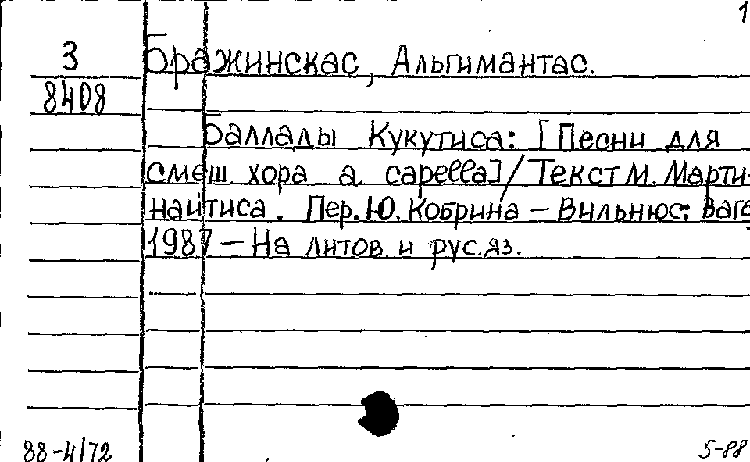 1
З Бражинскас, Альгимантас.
8408
Баллады Кукутиса: [Песни для
смеш. хора a capella] / Текст М. Марти-
найтиса. Пер. Ю. Кобрина – Вильнюс: Vaga
1987 – На литов. и рус. яз.
88-4172 5-88